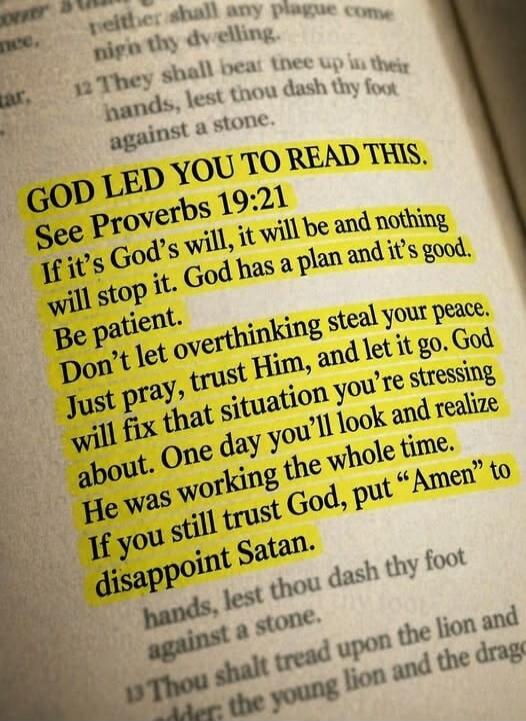 neither shall any plague come
nigh thy dwelling.
12 They shall bear thee up in their
hands, lest thou dash thy foot
against a stone.
GOD LED YOU TO READ THIS.
See Proverbs 19:21
If it's God's will, it will be and nothing
will stop it. God has a plan and it's good.
Be patient.
Don't let overthinking steal your peace.
Just pray, trust Him, and let it go. God
will fix that situation you're stressing
about. One day you'll look and realize
He was working the whole time.
If you still trust God, put “Amen” to
disappoint Satan.
hands, lest thou dash thy foot
against a stone.
13 Thou shalt tread upon the lion and
the young lion and the